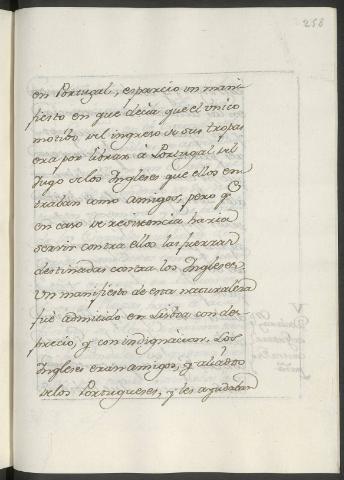 258
en Portugal, esparcio un mani-
fiesto en que decia que el unico
motibo del ingreso de sus tropas
era por librar à Portugal del
Jugo de los Ingleses que ellos en-
traban como amigos, pero q.^e
en caso de resistencia haria
servir contra ellos las fuerzas
destinadas contra los Ingleses.
Un manifiesto de esta naturaleza
fue admitido en Lisboa con des-
precio, y con indignacion. Los
Ingleses eran amigos, y aliados
de los Portugueses, y les ayudaban